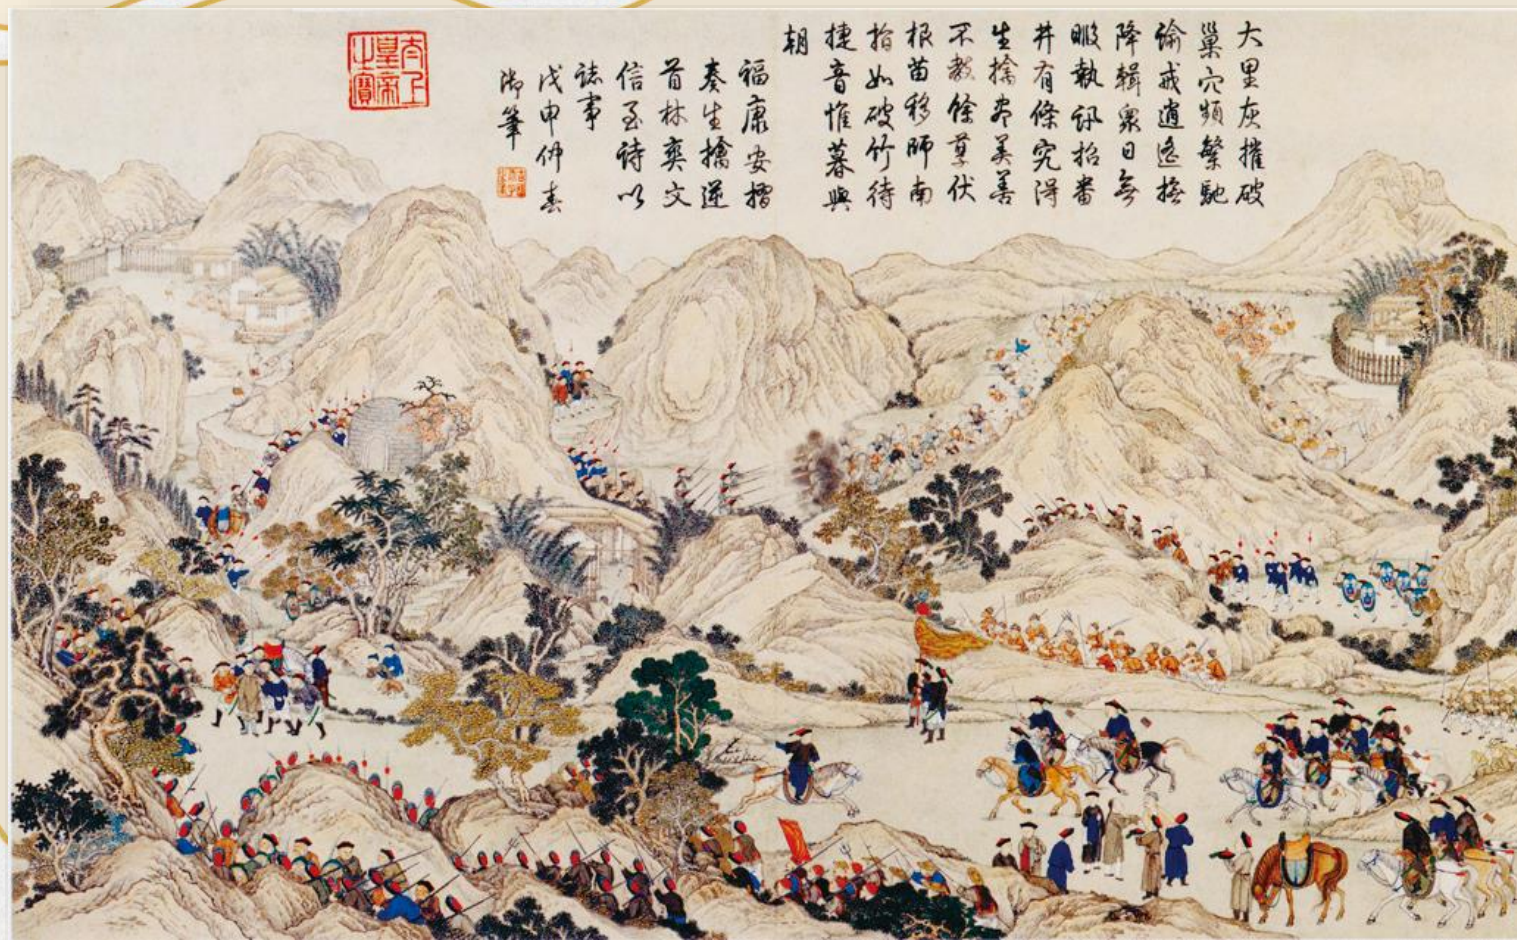 大里灰摧破
巢穴頻繁馳
諭戒逍遙撫
降輯眾日無
暇執訊招番
井有條究得
生擒盡美善
不教餘孽伏
根苗移師南
指如破竹待
捷音惟暮與
朝
福康安摺
奏生擒逆
首林爽文
信至詩以
誌事
戊申仲春
御筆
太上
皇帝
之寶